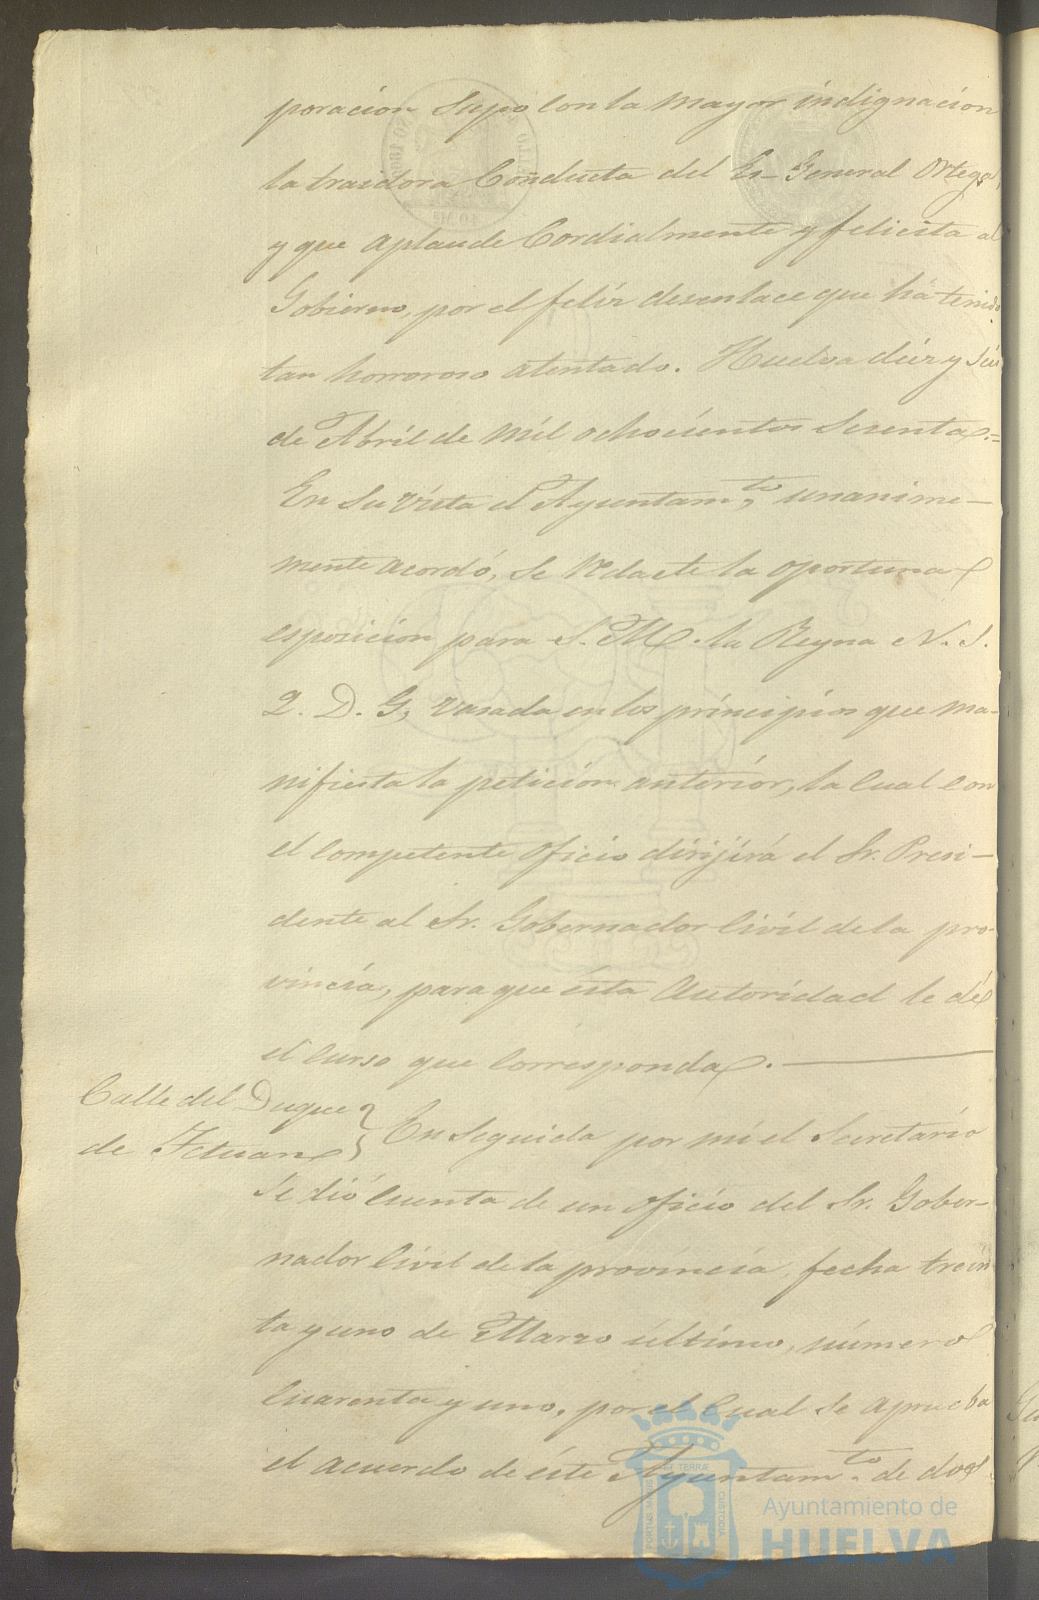 poracion supo con la mayor indignacion
la traidora Conducta del Ex- General Ortega,
y que aplaude Cordialmente y felicita al
Gobierno, por el felíz desenlace que há tenido
tan horroroso atentado. Huelva diez y seis
de Abril de mil ochocientos sesenta.=
En su vista el Ayuntam.to, unanime-
mente acordó, se redacte la oportuna
esposicion para S. M. la Reyna N. S.
Q. D. G, vasada en los principios que ma-
nifiesta la peticion anterior, la cual con
el competente oficio dirijirá el Sr. Presi-
dente al Sr. Gobernador Civil de la pro-
vincia, para que ésta Autoridad le dé
el curso que corresponda.
Calle del Duque
de Tetuan
En seguida por mí el Secretario
se dió cuenta de un oficio del Sr. Gober-
nador Civil de la provincia, fecha trein-
ta y uno de Marzo último, número
cuarenta y uno, por el cual se aprueba
el acuerdo de éste Ayuntam.to de dos
PORTUS MARIS ET TERRÆ CUSTODIA
Ayuntamiento de
HUELVA